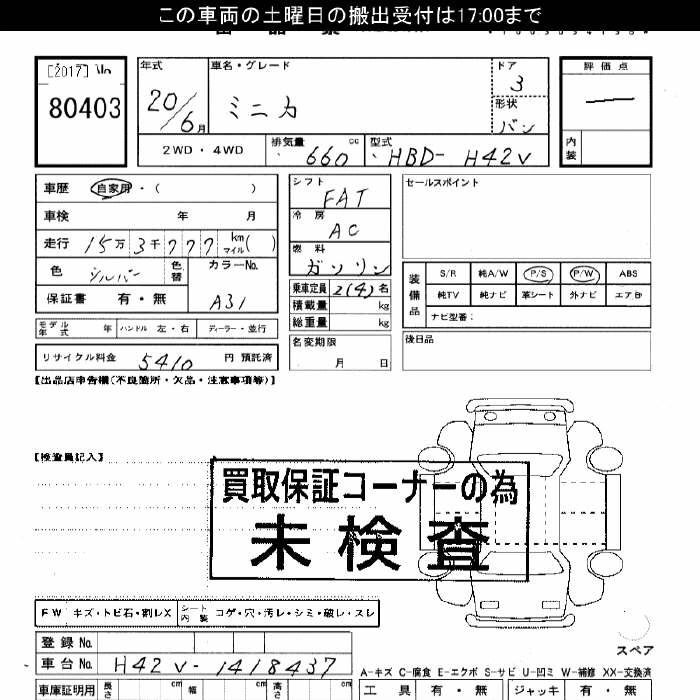 この車両の土曜日の搬出受付は17:00まで
[2017] No
80403
年式
20/6月
車名・グレード
ミニカ
ドア
3
形状
バン
評価点
内装
2WD・4WD
排気量
660
cc
型式
HBD- H42V
車歴
自家用・( )
車検 年 月
走行 15万 3千 777 km マイル( )
色 シルバー 色替
カラーNo.
A31
保証書 有・無
シフト
FAT
冷房
AC
燃料
ガソリン
乗車定員 2(4) 名
積載量 kg
総重量 kg
セールスポイント
装備品
S/R 純A/W P/S P/W ABS
純TV 純ナビ 革シート 外ナビ エアB
ナビ型番:
モデル年式 年 ハンドル 左・右 ディーラー・並行
名変期限
月 日
後日品
リサイクル料金 5410 円 預託済
【出品店申告欄(不良箇所・欠品・注意事項等)】
【検査員記入】
買取保証コーナーの為
未検査
FW キズ・トビ石・割レX シート内装 コゲ・穴・汚レ・シミ・破レ・スレ
スペア
登録 No.
車台 No. H42V-1418437
A-キズ C-腐食 E-エクボ S-サビ U-凹ミ W-補修 XX-交換済
車庫証明用 長さ cm 幅 cm 高さ cm
工具 有・無 ジャッキ 有・無